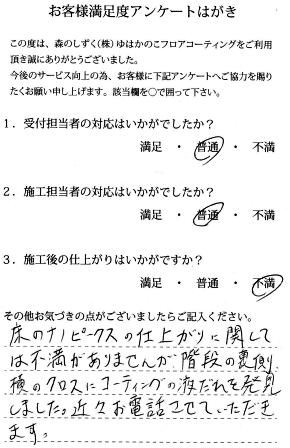 お客様満足度アンケートはがき
この度は、森のしずく(株)ゆはかのこフロアコーティングをご利用
頂き誠にありがとうございました。
今後のサービス向上の為、お客様に下記アンケートへご協力を賜り
たくお願い申し上げます。該当欄を○で囲って下さい。
1．受付担当者の対応はいかがでしたか？
満足 ・ 普通 ・ 不満
2．施工担当者の対応はいかがでしたか？
満足 ・ 普通 ・ 不満
3．施工後の仕上がりはいかがですか？
満足 ・ 普通 ・ 不満
その他お気づきの点がございましたらご記入ください。
床のナノピークスの仕上がりに関して
は不満がありませんが階段の裏側
横のクロスにコーティングの液だれを発見
しました。近々お電話させていただき
ます。